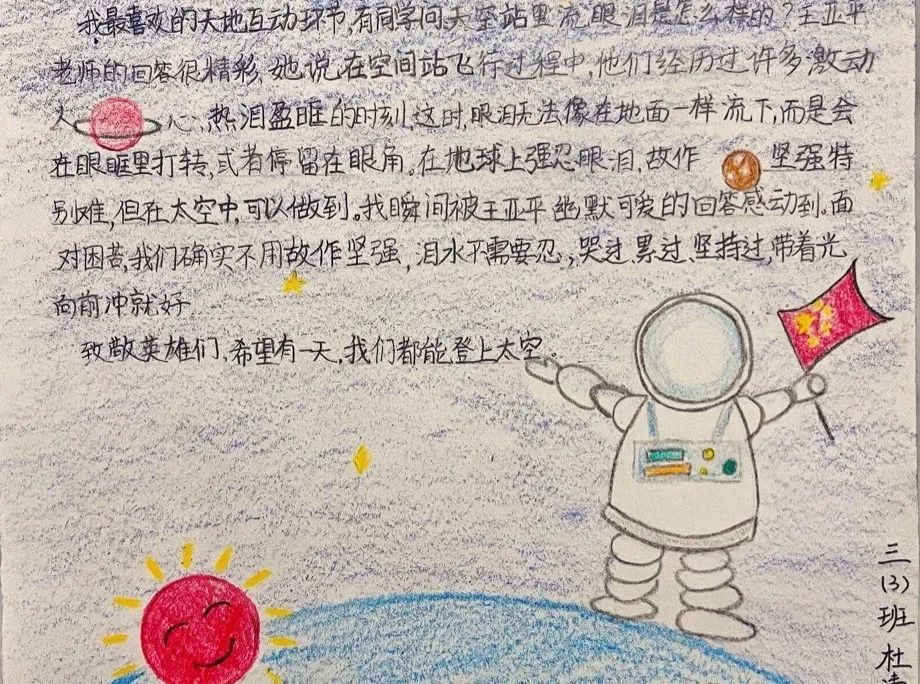 我最喜欢的天地互动环节,有同学问天空站里流眼泪是怎么样的?王亚平
老师的回答很精彩,她说,在空间站飞行过程中,他们经历过许多激动
人心、热泪盈眶的时刻,这时,眼泪无法像在地面一样流下,而是会
在眼眶里打转,或者停留在眼角。在地球上强忍眼泪,故作坚强特
别难,但在太空中,可以做到。我瞬间被王亚平幽默可爱的回答感动到。面
对困苦,我们确实不用故作坚强,泪水不需要忍,哭过、累过、坚持过,带着光
向前冲就好
致敬英雄们,希望有一天,我们都能登上太空。
三(3)班 杜